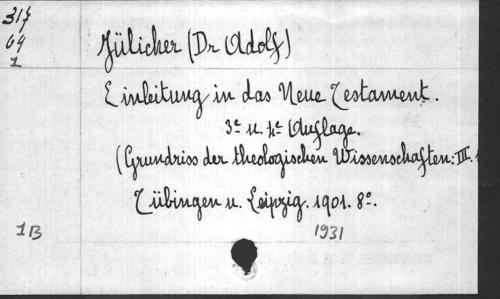 317
64
1
Jülicher (Dr Adolf)
Einleitung in das Neue Testament.
3e u. 4e Auflage.
(Grundriss der theologischen Wissenschaften: III.
Tübingen u. Leipzig. 1901. 8o.
1B
1931